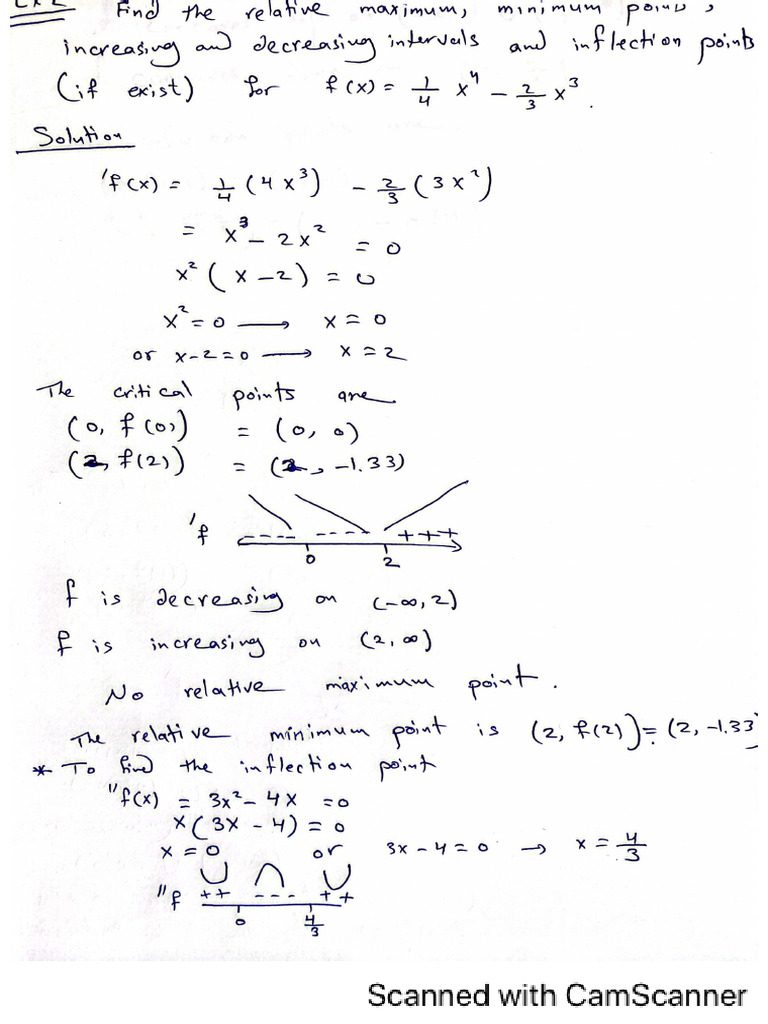 Ex 2 Find the relative maximum, minimum points,
increasing and decreasing intervals and inflection points
(if exist) for f(x) = 1/4 x⁴ - 2/3 x³.
Solution
'f(x) = 1/4 (4x³) - 2/3 (3x²)
= x³ - 2x² = 0
x² (x-2) = 0
x² = 0 → x = 0
or x-2=0 → x = 2
The critical points are
(0, f(0)) = (0, 0)
(2, f(2)) = (2, -1.33)
'f ---- ---- +++
0 2
f is decreasing on (-∞, 2)
f is increasing on (2, ∞)
No relative maximum point.
The relative minimum point is (2, f(2)) = (2, -1.33)
* To find the inflection point
"f(x) = 3x² - 4x = 0
x(3x - 4) = 0
x = 0 or 3x - 4 = 0 → x = 4/3
"f ++ --- ++
0 4/3
Scanned with CamScanner